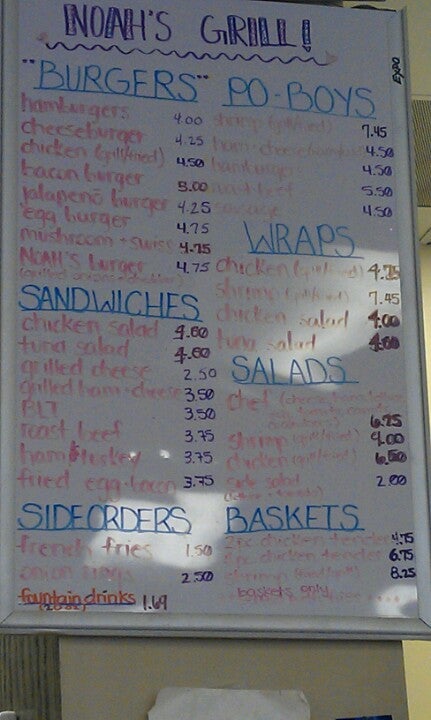 NOAH'S GRILL!
EXPO
"BURGERS"
hamburgers 4.00
cheeseburger 4.25
chicken (grill/fried) 4.50
bacon burger 5.00
jalapeno burger 4.25
egg burger 4.75
mushroom + swiss 4.75
NOAH'S burger 4.75
SANDWICHES
chicken salad 4.00
tuna salad 4.00
grilled cheese 2.50
grilled ham + cheese 3.50
BLT 3.50
roast beef 3.75
ham & turkey 3.75
fried egg + bacon 3.75
SIDE ORDERS
french fries 1.50
onion rings 2.50
fountain drinks 1.69
PO-BOYS
shrimp (grill/fried) 7.45
ham + cheese 4.50
hamburgers 4.50
roast beef 5.50
sausage 4.50
WRAPS
chicken (grill/fried) 4.75
shrimp (grill/fried) 7.45
chicken salad 4.00
tuna salad 4.00
SALADS
chef 6.75
shrimp (grill/fried) 9.00
chicken (grill/fried) 6.50
side salad 2.00
BASKETS
2pc. chicken tender 4.75
chicken tender 6.75
shrimp 8.25
baskets only